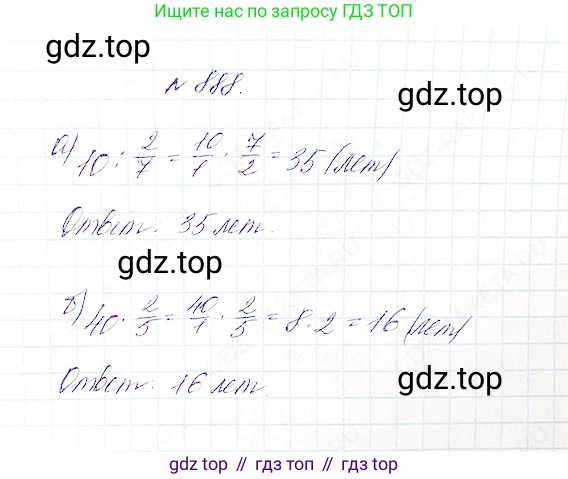 Ищите нас по запросу ГДЗ ТОП
gdz.top
№ 888.
gdz.top
а) 10 : 2/7 = 10/1 · 7/2 = 35 (лет)
Ответ: 35 лет.
gdz.top
б) 40 · 2/5 = 40/1 · 2/5 = 8 · 2 = 16 (лет)
Ответ: 16 лет.
gdz.top
gdz top // гдз топ // gdz top